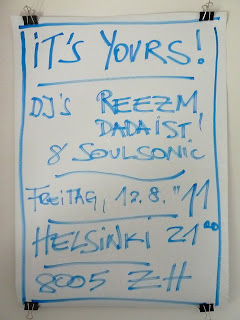 IT'S YOURS!
DJ's REEZM,
DADAIST,
& SOULSONIC
FREITAG, 12.8."11
HELSINKI 21⁰⁰
8005 ZH